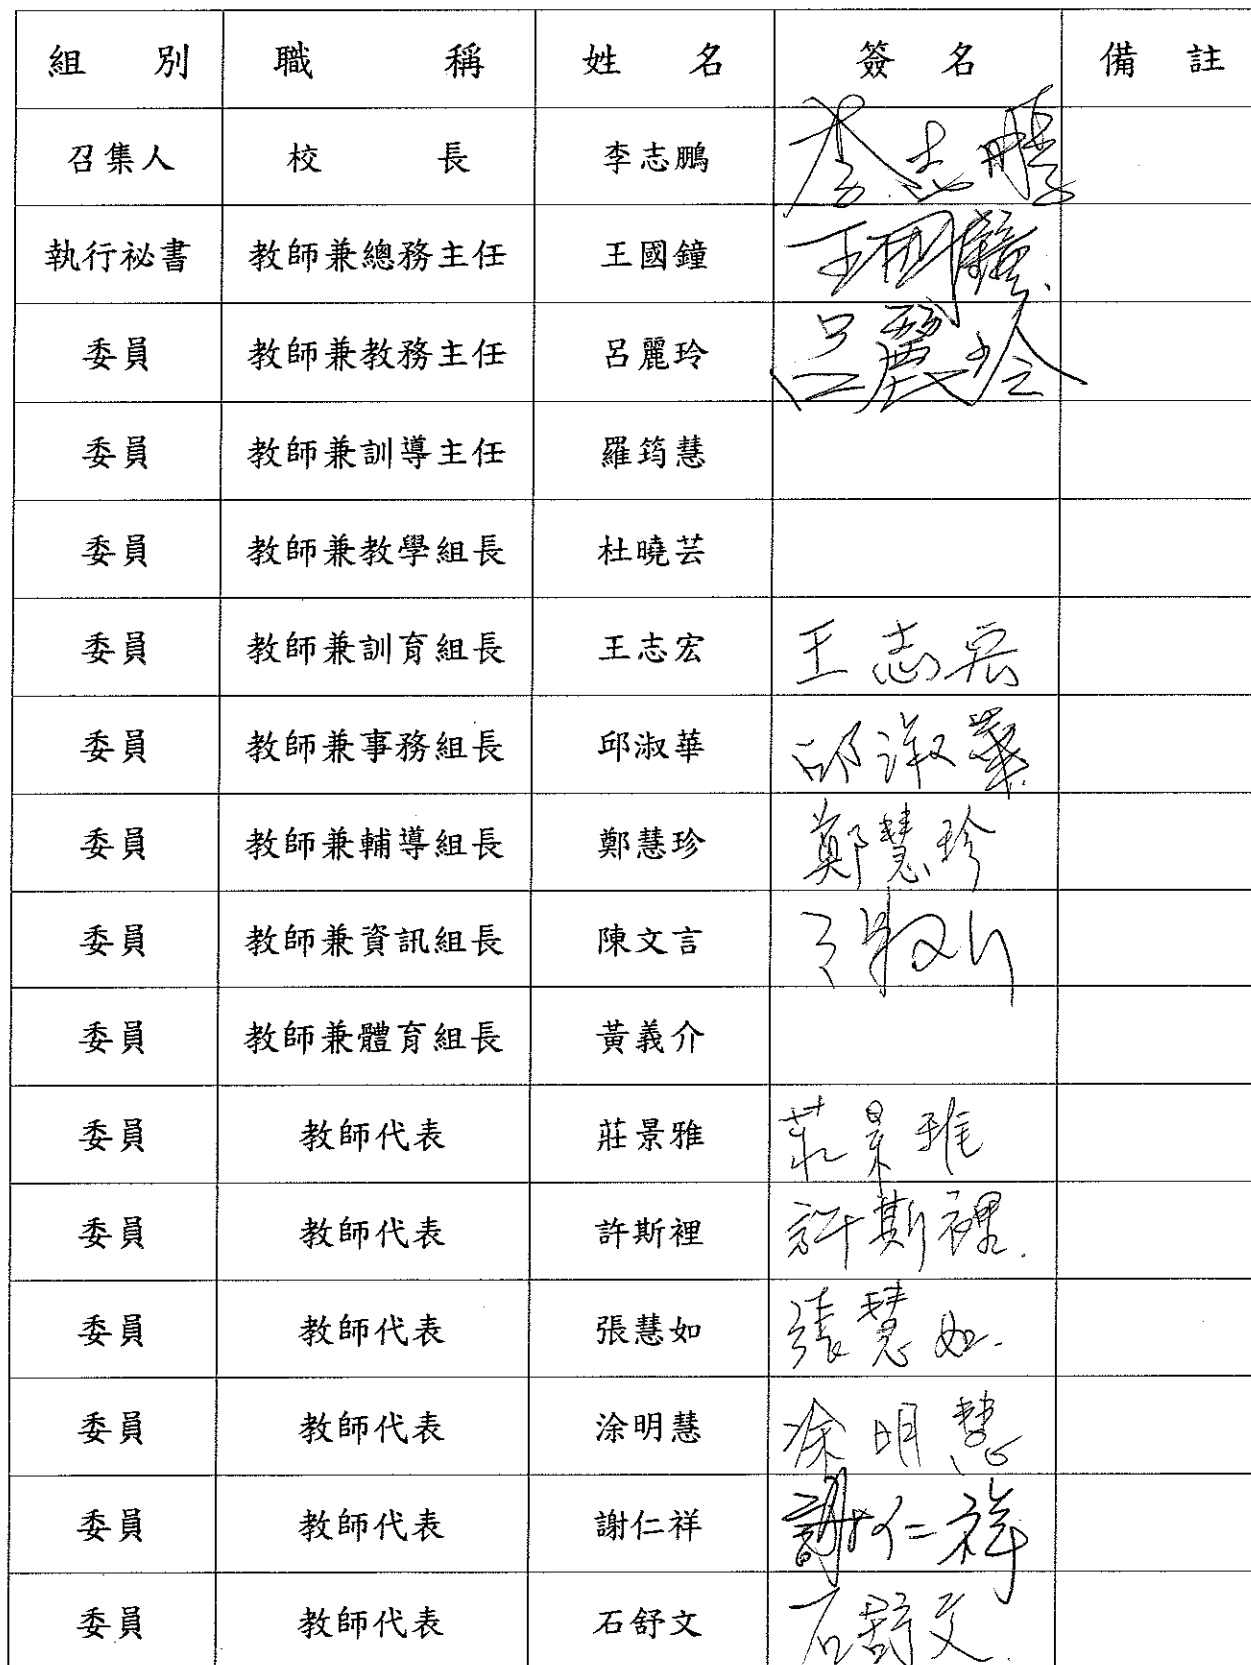 組別 職稱 姓名 簽名 備註
召集人 校長 李志鵬 李志鵬
執行祕書 教師兼總務主任 王國鐘 王國鐘
委員 教師兼教務主任 呂麗玲 呂麗玲
委員 教師兼訓導主任 羅筠慧
委員 教師兼教學組長 杜曉芸
委員 教師兼訓育組長 王志宏 王志宏
委員 教師兼事務組長 邱淑華 邱淑華
委員 教師兼輔導組長 鄭慧珍 鄭慧珍
委員 教師兼資訊組長 陳文言
委員 教師兼體育組長 黃義介
委員 教師代表 莊景雅 莊景雅
委員 教師代表 許斯裡 許斯裡
委員 教師代表 張慧如 張慧如
委員 教師代表 涂明慧 涂明慧
委員 教師代表 謝仁祥 謝仁祥
委員 教師代表 石舒文 石舒文